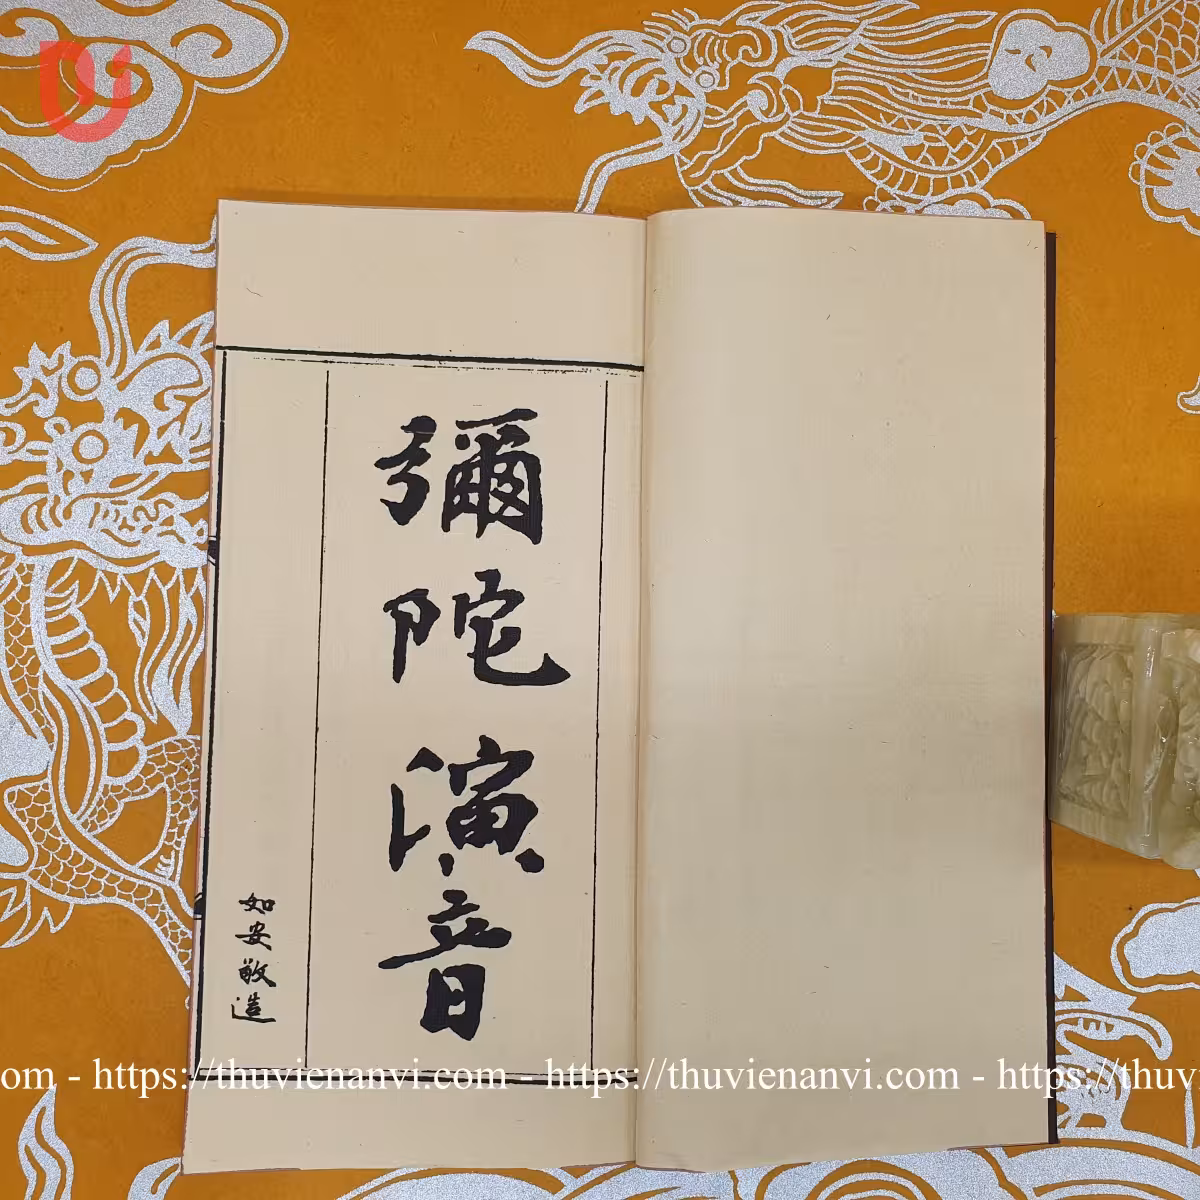 彌陀演音
如安敬造
om - https://thuvienanvi.com - https://thuvienanvi.com - https://thuv